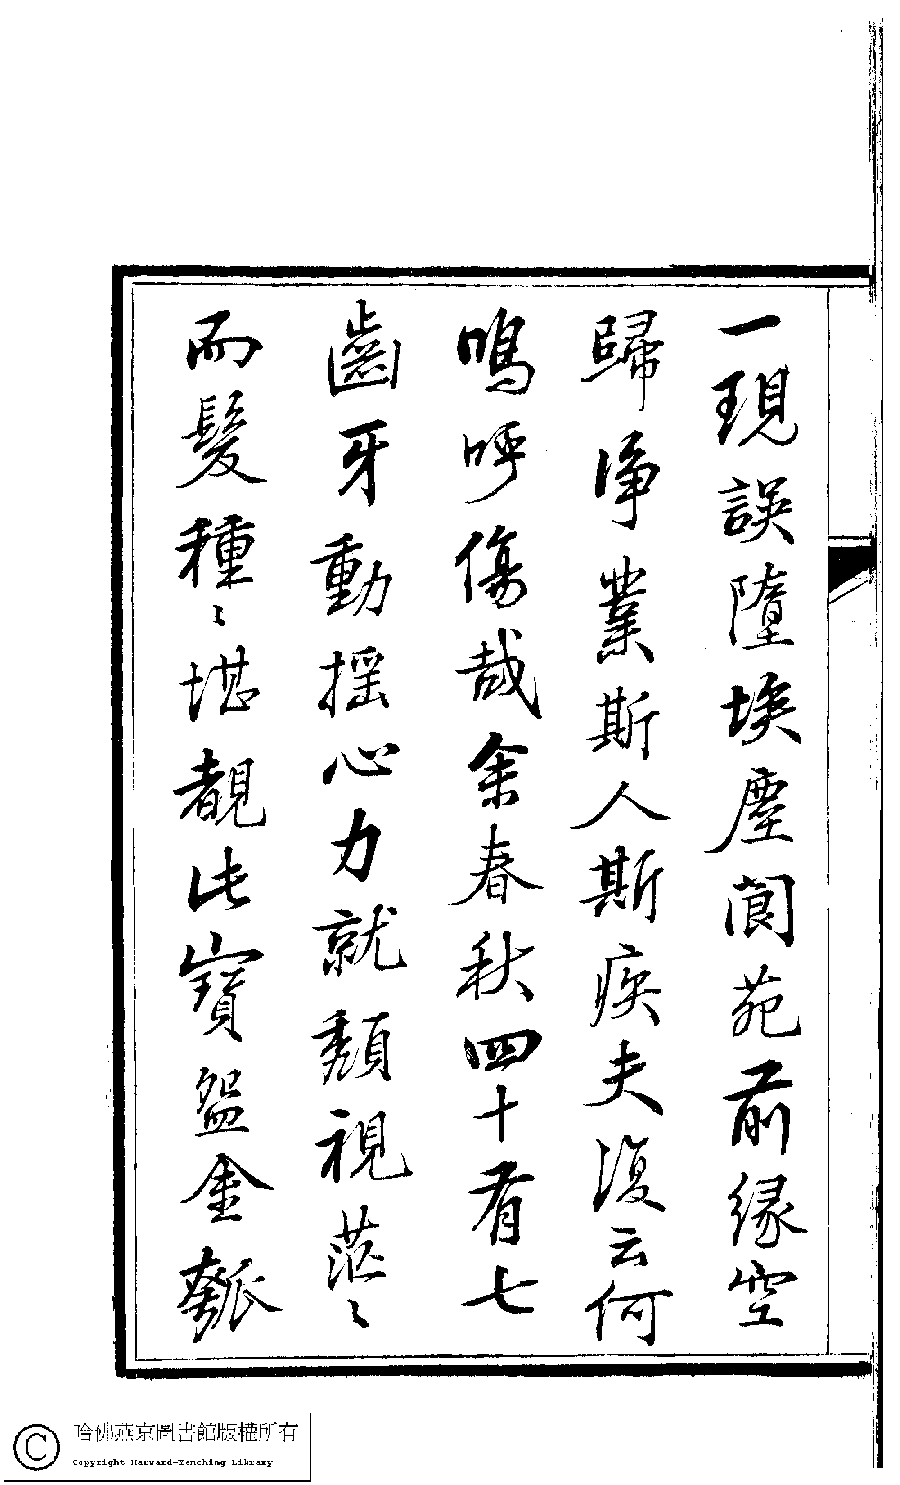 一現誤墮埃塵閬苑前緣空
歸淨業斯人斯疾夫復云何
嗚呼傷哉余春秋四十有七
齒牙動搖心力就頹視茫〻
而髮種〻堪覩此寶盌金瓠
哈佛燕京圖書館版權所有
Copyright Harvard-Yenching Library